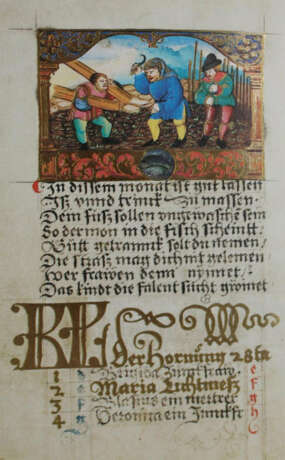 In dissem monat ist gut lassen
Iß vnnd trinck zu massen
Dein fuß sollen vngewasche sein
So der mon in die fisch scheint
Gůtt getrannck solt du nemen
Die straß mag dich nit gelemen
Wer frawen denn nÿmet
Das kindt die falent sücht gwinet
KL
der Hornung 28 ta
1 e Brigida Junckfraw e
2 f Maria Liechtmeß f
3 g Blasius ein mertrer g
4 Veronica ein Junckfr h